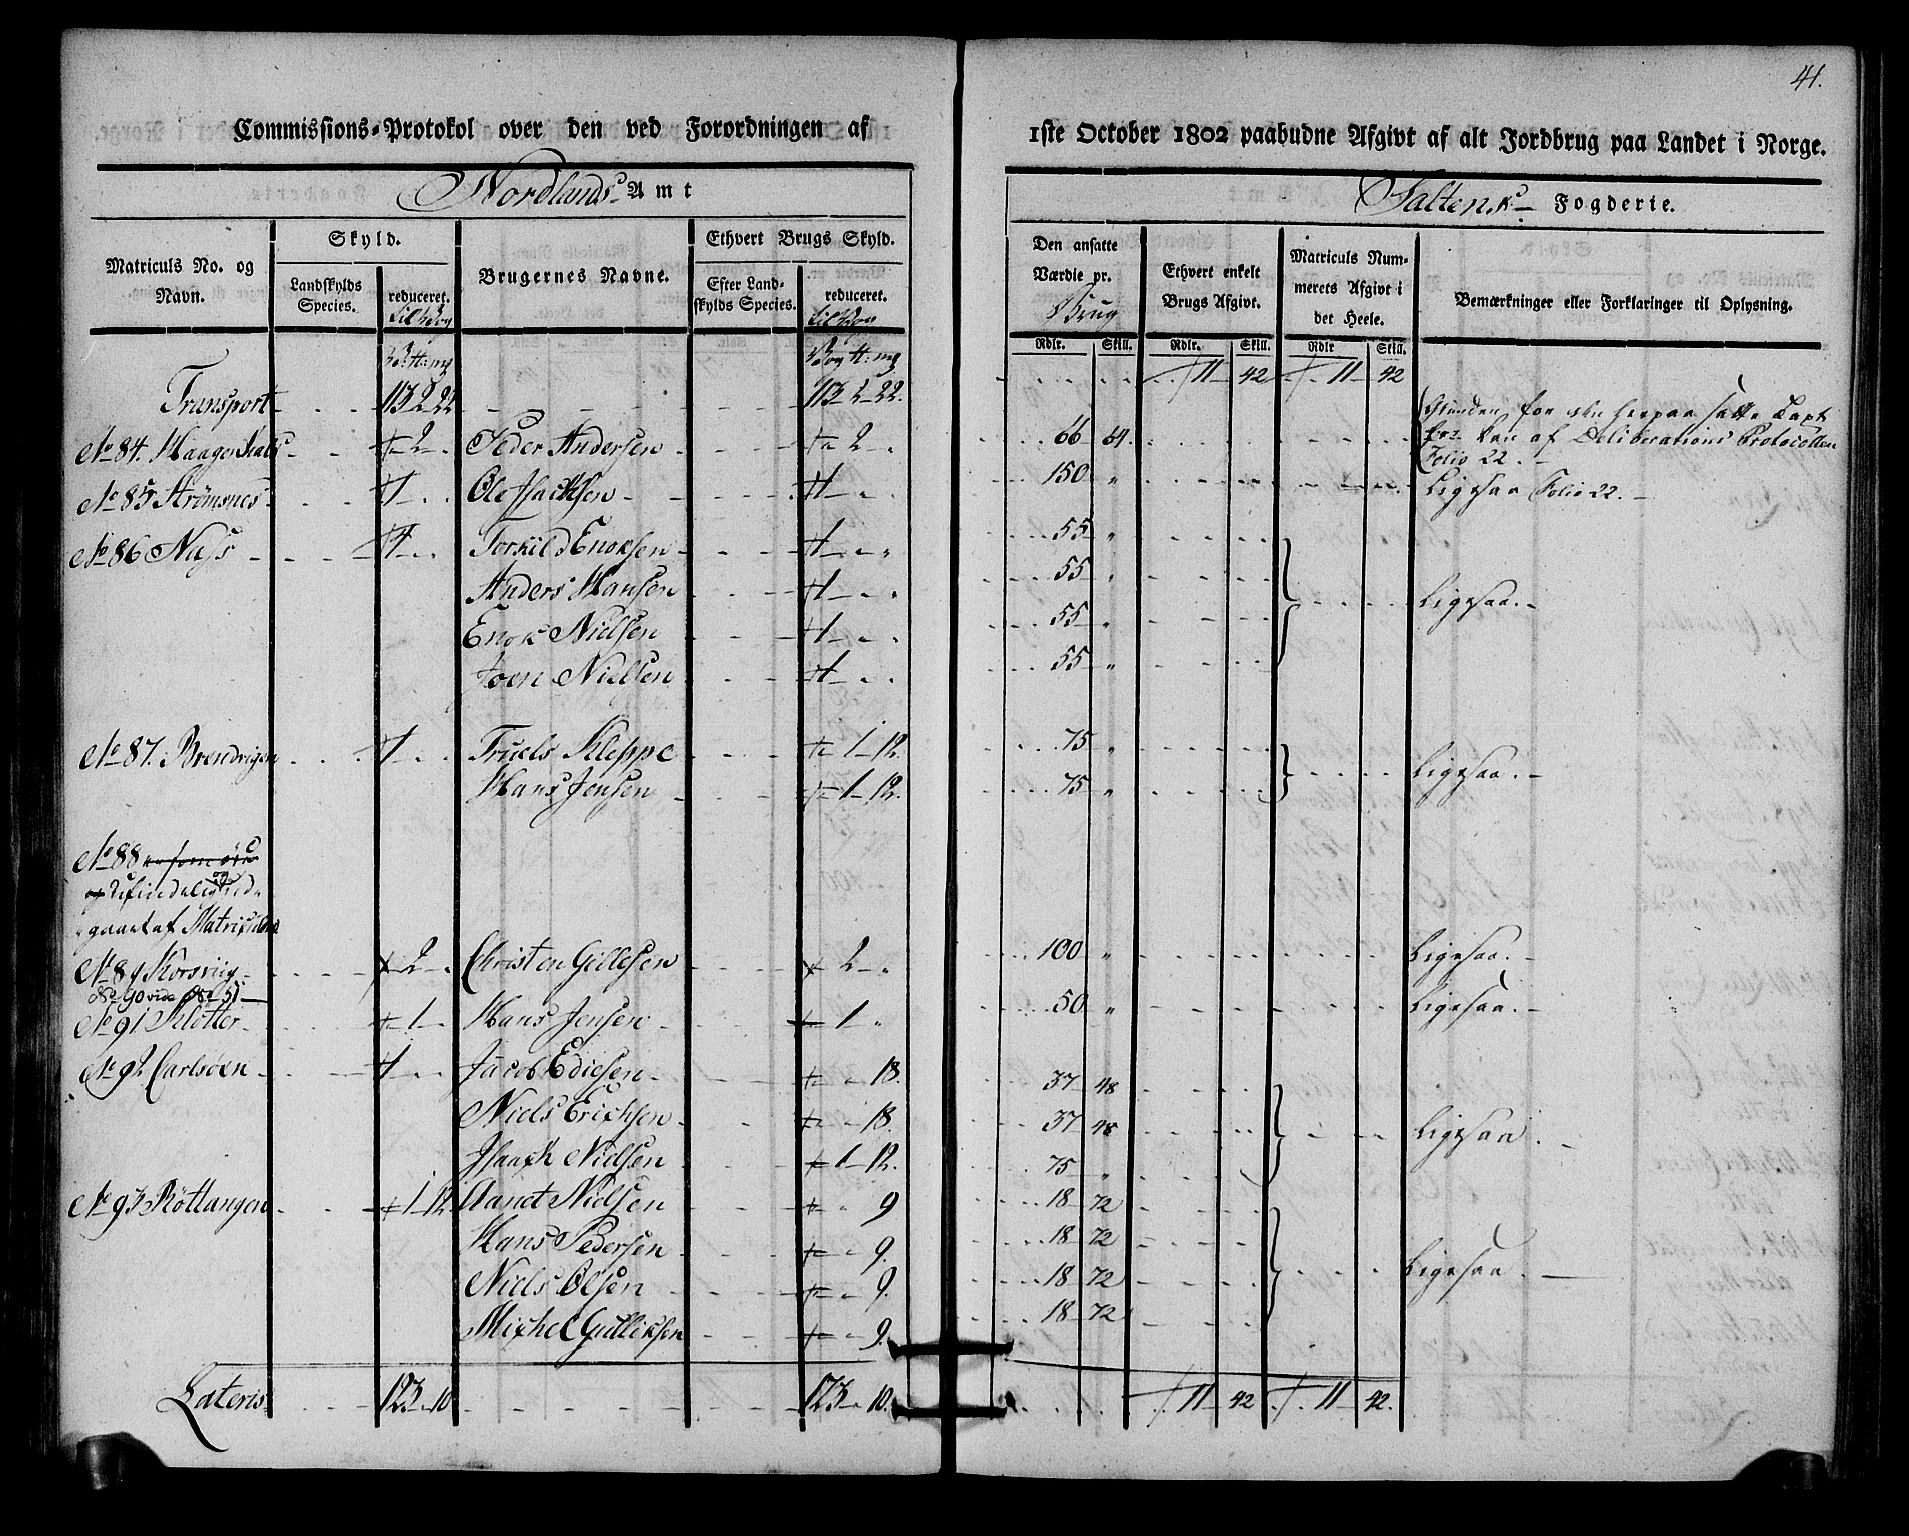 41.
Commissions-Protokol over den ved Forordningen af
1ste October 1802 paabudne Afgivt af alt Jordbrug paa Landet i Norge.
Nordlands Amt
Saltens Fogderie.
Matriculs No. og Navn.
Skyld.
Landskylds Species.
reduceret.
Brugernes Navne.
Ethvert Brugs Skyld.
Efter Landskylds Species.
reduceret.
Den ansatte Værdie pr. Brug
Ethvert enkelt Brugs Afgivt.
Matriculs Nummerets Afgivt i det Heele.
Bemærkninger eller Forklaringer til Oplysning.
Rdlr. Skill. Rdlr. Skill. Rdlr Skill.
Transport 113 2 22 113 2 22. 11 42 11 42
No 84. 2 Peder Andersen 2 66 64. Grunden for den herpaa satte Taxt kan af Deliberations Protocollen Folio 22.
No 85 Strømsnes 1 Ole Isachsen 1 150 " Ligesaa Folio 22.
No 86 Næss 4 Torkild Enoksen 1 55 "
Anders Hansen 1 55 Ligesaa.
Enok Nielsen 1 55 "
Joen Nielsen 1 55 "
No 87. 1 Truels Kleppe 1 12. 75 "
Hans Jensen 1 12. 75 " Ligesaa.
No 88
og
gaaet af Matriculen
No 89 Korsviig 2 Christen Gillesen 2 " 100 " Ligesaa.
No 90 vide No 51
No 91 Kløtter 1 Hans Jensen 1 " 50 " Ligesaa.
No 92 Carlsøen 1 Jacob Ediesen 18. 37 48
Niels Erichsen 18. 37 48 Ligesaa.
Isaach Nielsen 1 12. 75 "
No 93 Røttangen 1 12. Aanet Nielsen 9 18 72
Hans Pedersen 9. 18 72
Niels Olsen 9. 18 72 Ligesaa.
Michel Gulliksen 9. 18 72
Lateris 123 10 123 10. 11 42 11 42.